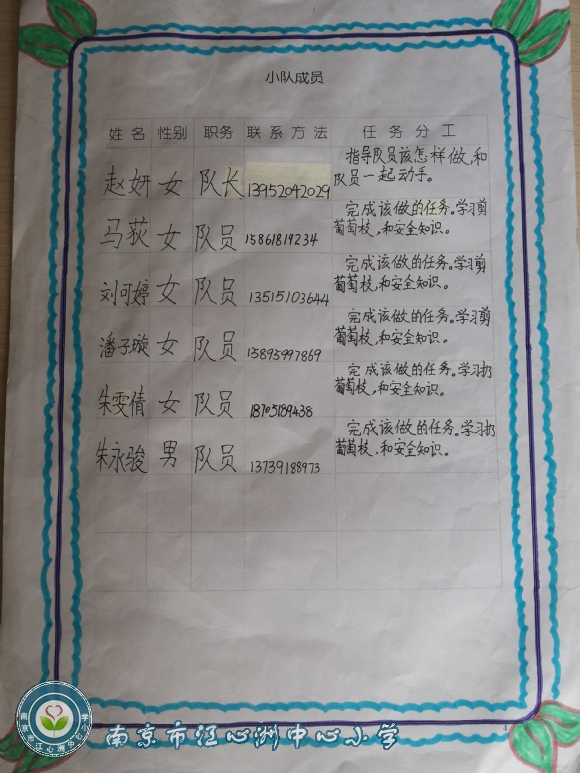 小队成员
姓名 性别 职务 联系方法 任务分工
赵妍 女 队长 13952042029 指导队员该怎样做,和
队员一起动手。
马荻 女 队员 15861819234 完成该做的任务。学习剪
葡萄枝,和安全知识。
刘可婷 女 队员 13515103644 完成该做的任务。学习剪
葡萄枝,和安全知识。
潘子璇 女 队员 15895997869 完成该做的任务。学习剪
葡萄枝,和安全知识。
朱雯倩 女 队员 18705189438 完成该做的任务。学习扔
葡萄枝,和安全知识。
朱永骏 男 队员 13739188973 完成该做的任务。学习扔
葡萄枝,和安全知识。
南京市江心洲中心小学
南京市江心洲中心小学